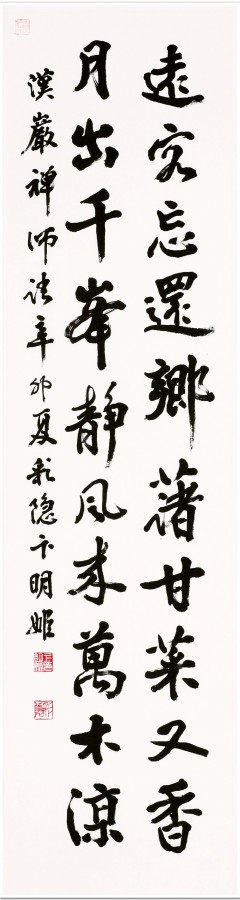 遠客忘還鄉藷甘菜又香
月出千峯靜風來萬木涼
漢巖禪師詩辛卯夏彩隐卞明姬